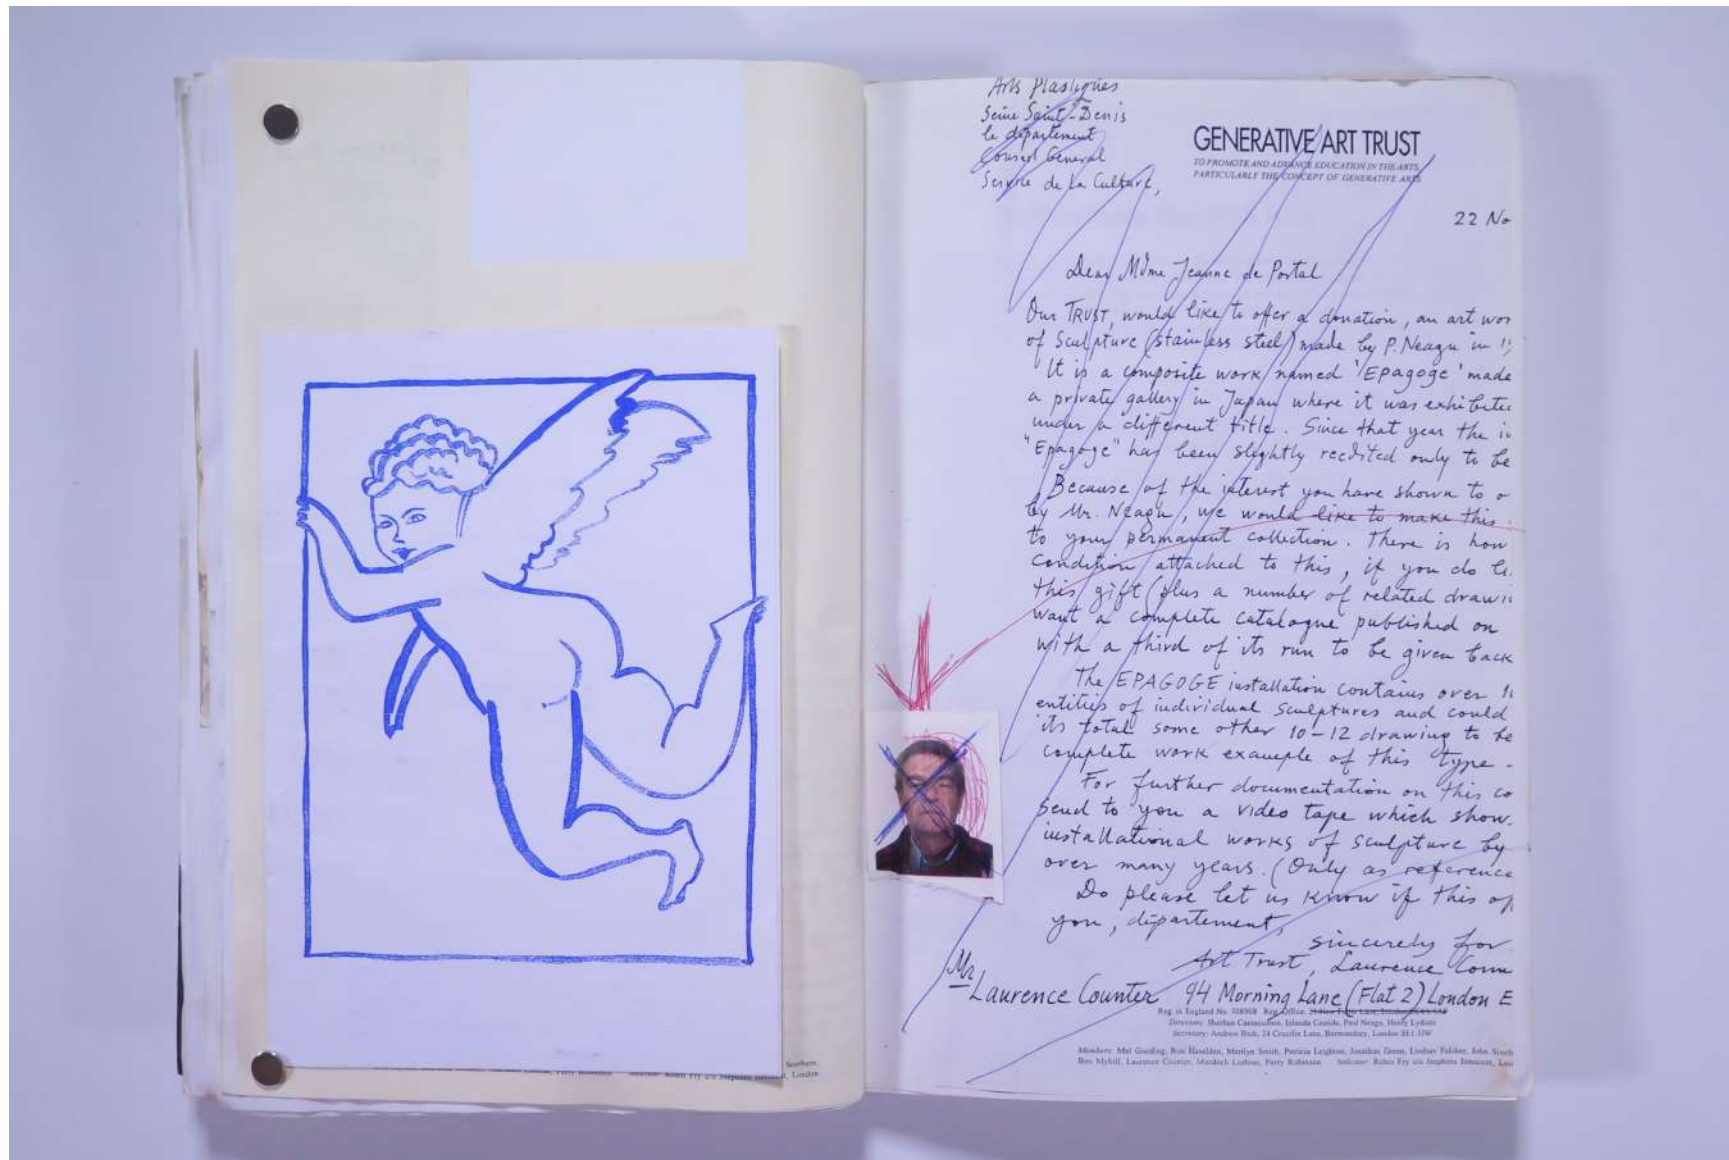 Arts Plastiques
Seine Saint-Denis
le département
Conseil General
Service de la Culture,
GENERATIVE ART TRUST
TO PROMOTE AND ADVANCE EDUCATION IN THE ARTS,
PARTICULARLY THE CONCEPT OF GENERATIVE ARTS
22 No
Dear Mdme Jeanne de Portal
Our TRUST, would like to offer a donation, an art wor
of Sculpture (stainless steel) made by P. Neagu in
It is a composite work named 'Epagoge' made
a private gallery in Japan where it was exhibited
under a different title. Since that year the
"Epagoge" has been slightly reedited only to be
Because of the interest you have shown to
by Mr. Neagu, we would like to make this
to your permanent collection. There is how
condition attached to this, if you do
this gift (plus a number of related drawi
want a complete catalogue published on
with a third of its run to be given back
The EPAGOGE installation contains over
entities of individual sculptures and could
its total some other 10-12 drawing to be
complete work example of this type -
For further documentation on this co
send to you a video tape which show
installational works of sculpture by
over many years. (Only as reference
Do please let us know if this
you, département,
sincerely for
Art Trust, Laurence
Mr Laurence Counter 94 Morning Lane (Flat 2) London E
Reg. in England No. Reg. Office.
Directors: Paul Neagu,
Secretary: Andrew Bick, 24 Crucifix Lane, Bermondsey, London SE1 3JW
Members: Mel Gooding, Ron Haselden, Marilyn Smith, Patricia Leighton, Jonathan Lindsay John Smith
Ben Laurence Perry Robinson Solicitor: Fry c/o Stephens Innocent,
London